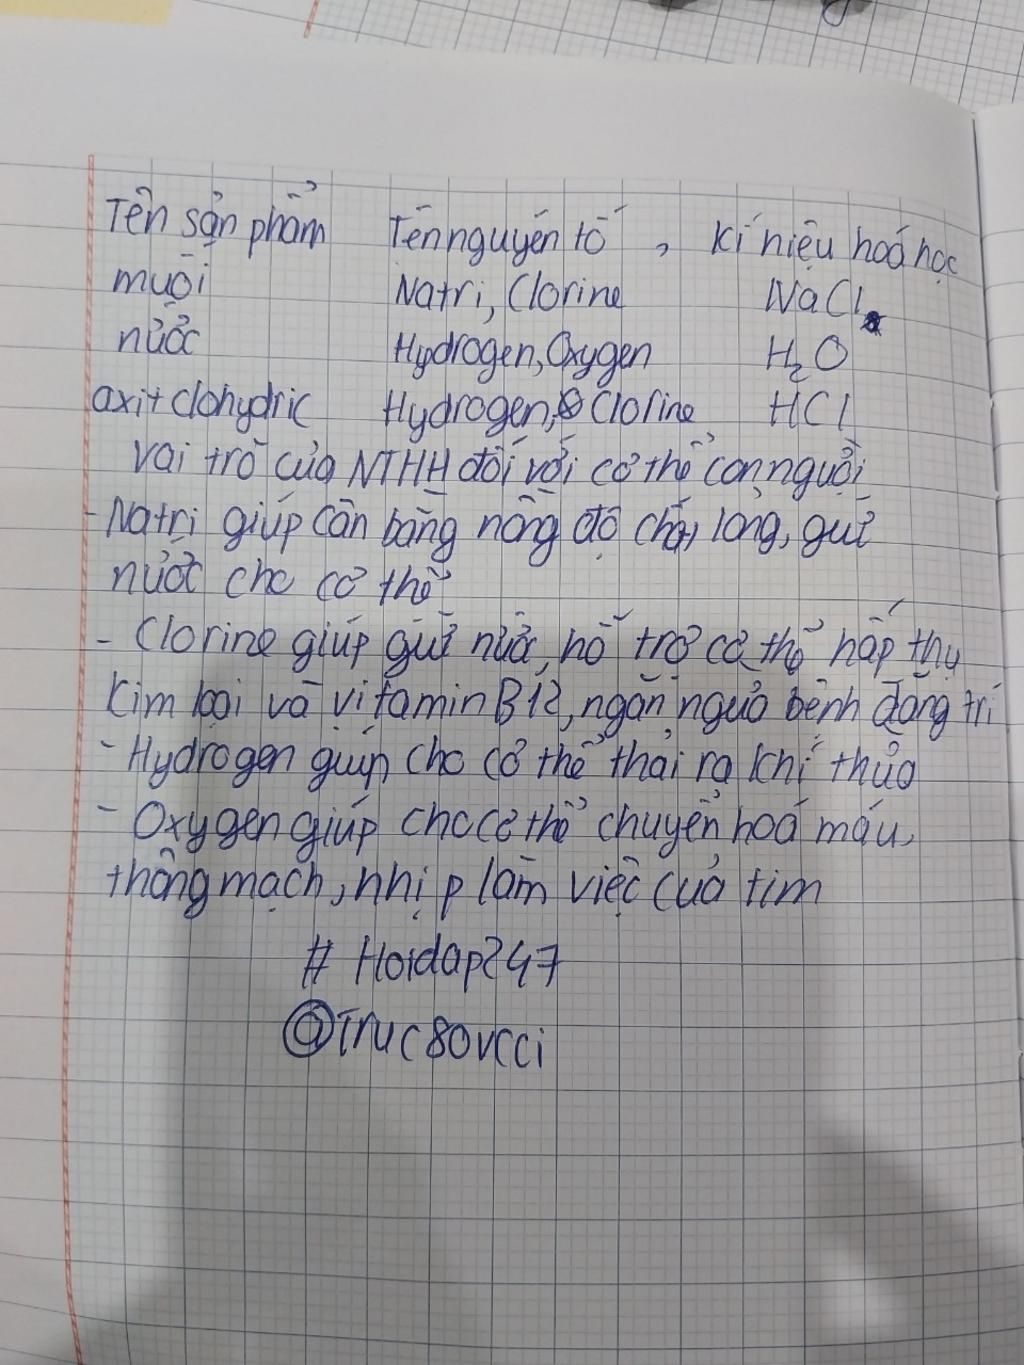 Tên sản phẩm Tên nguyên tố , kí hiệu hoá học
muối Natri, Clorine NaCl
nước Hydrogen, Oxygen H₂O
axit clohydric Hydrogen, Clorine HCl
vai trò của NTHH đối với cơ thể con người
- Natri giúp cân bằng nồng độ chất lỏng, giữ
nước cho cơ thể
- Clorine giúp giữ nước, hỗ trợ cơ thể hấp thụ
kim loại và vitamin B12, ngăn ngừa bệnh đãng trí
- Hydrogen giúp cho cơ thể thải ra khí thừa
- Oxygen giúp cho cơ thể chuyển hoá máu,
thông mạch, nhịp làm việc của tim
# Hoidap247
@Truc80vcci